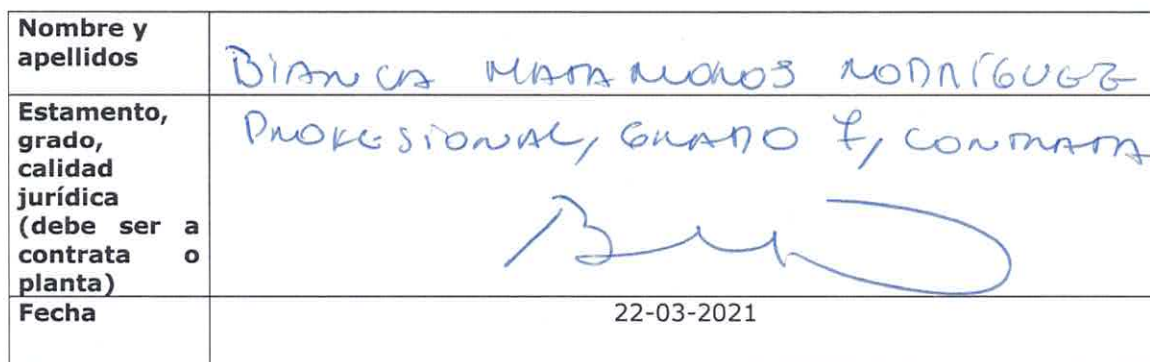 Nombre y
apellidos
BIANCA MATAMOROS RODRÍGUEZ
Estamento,
grado,
calidad
jurídica
(debe ser a
contrata o
planta)
PROFESIONAL, GRADO 7, CONTRATA
Fecha
22-03-2021